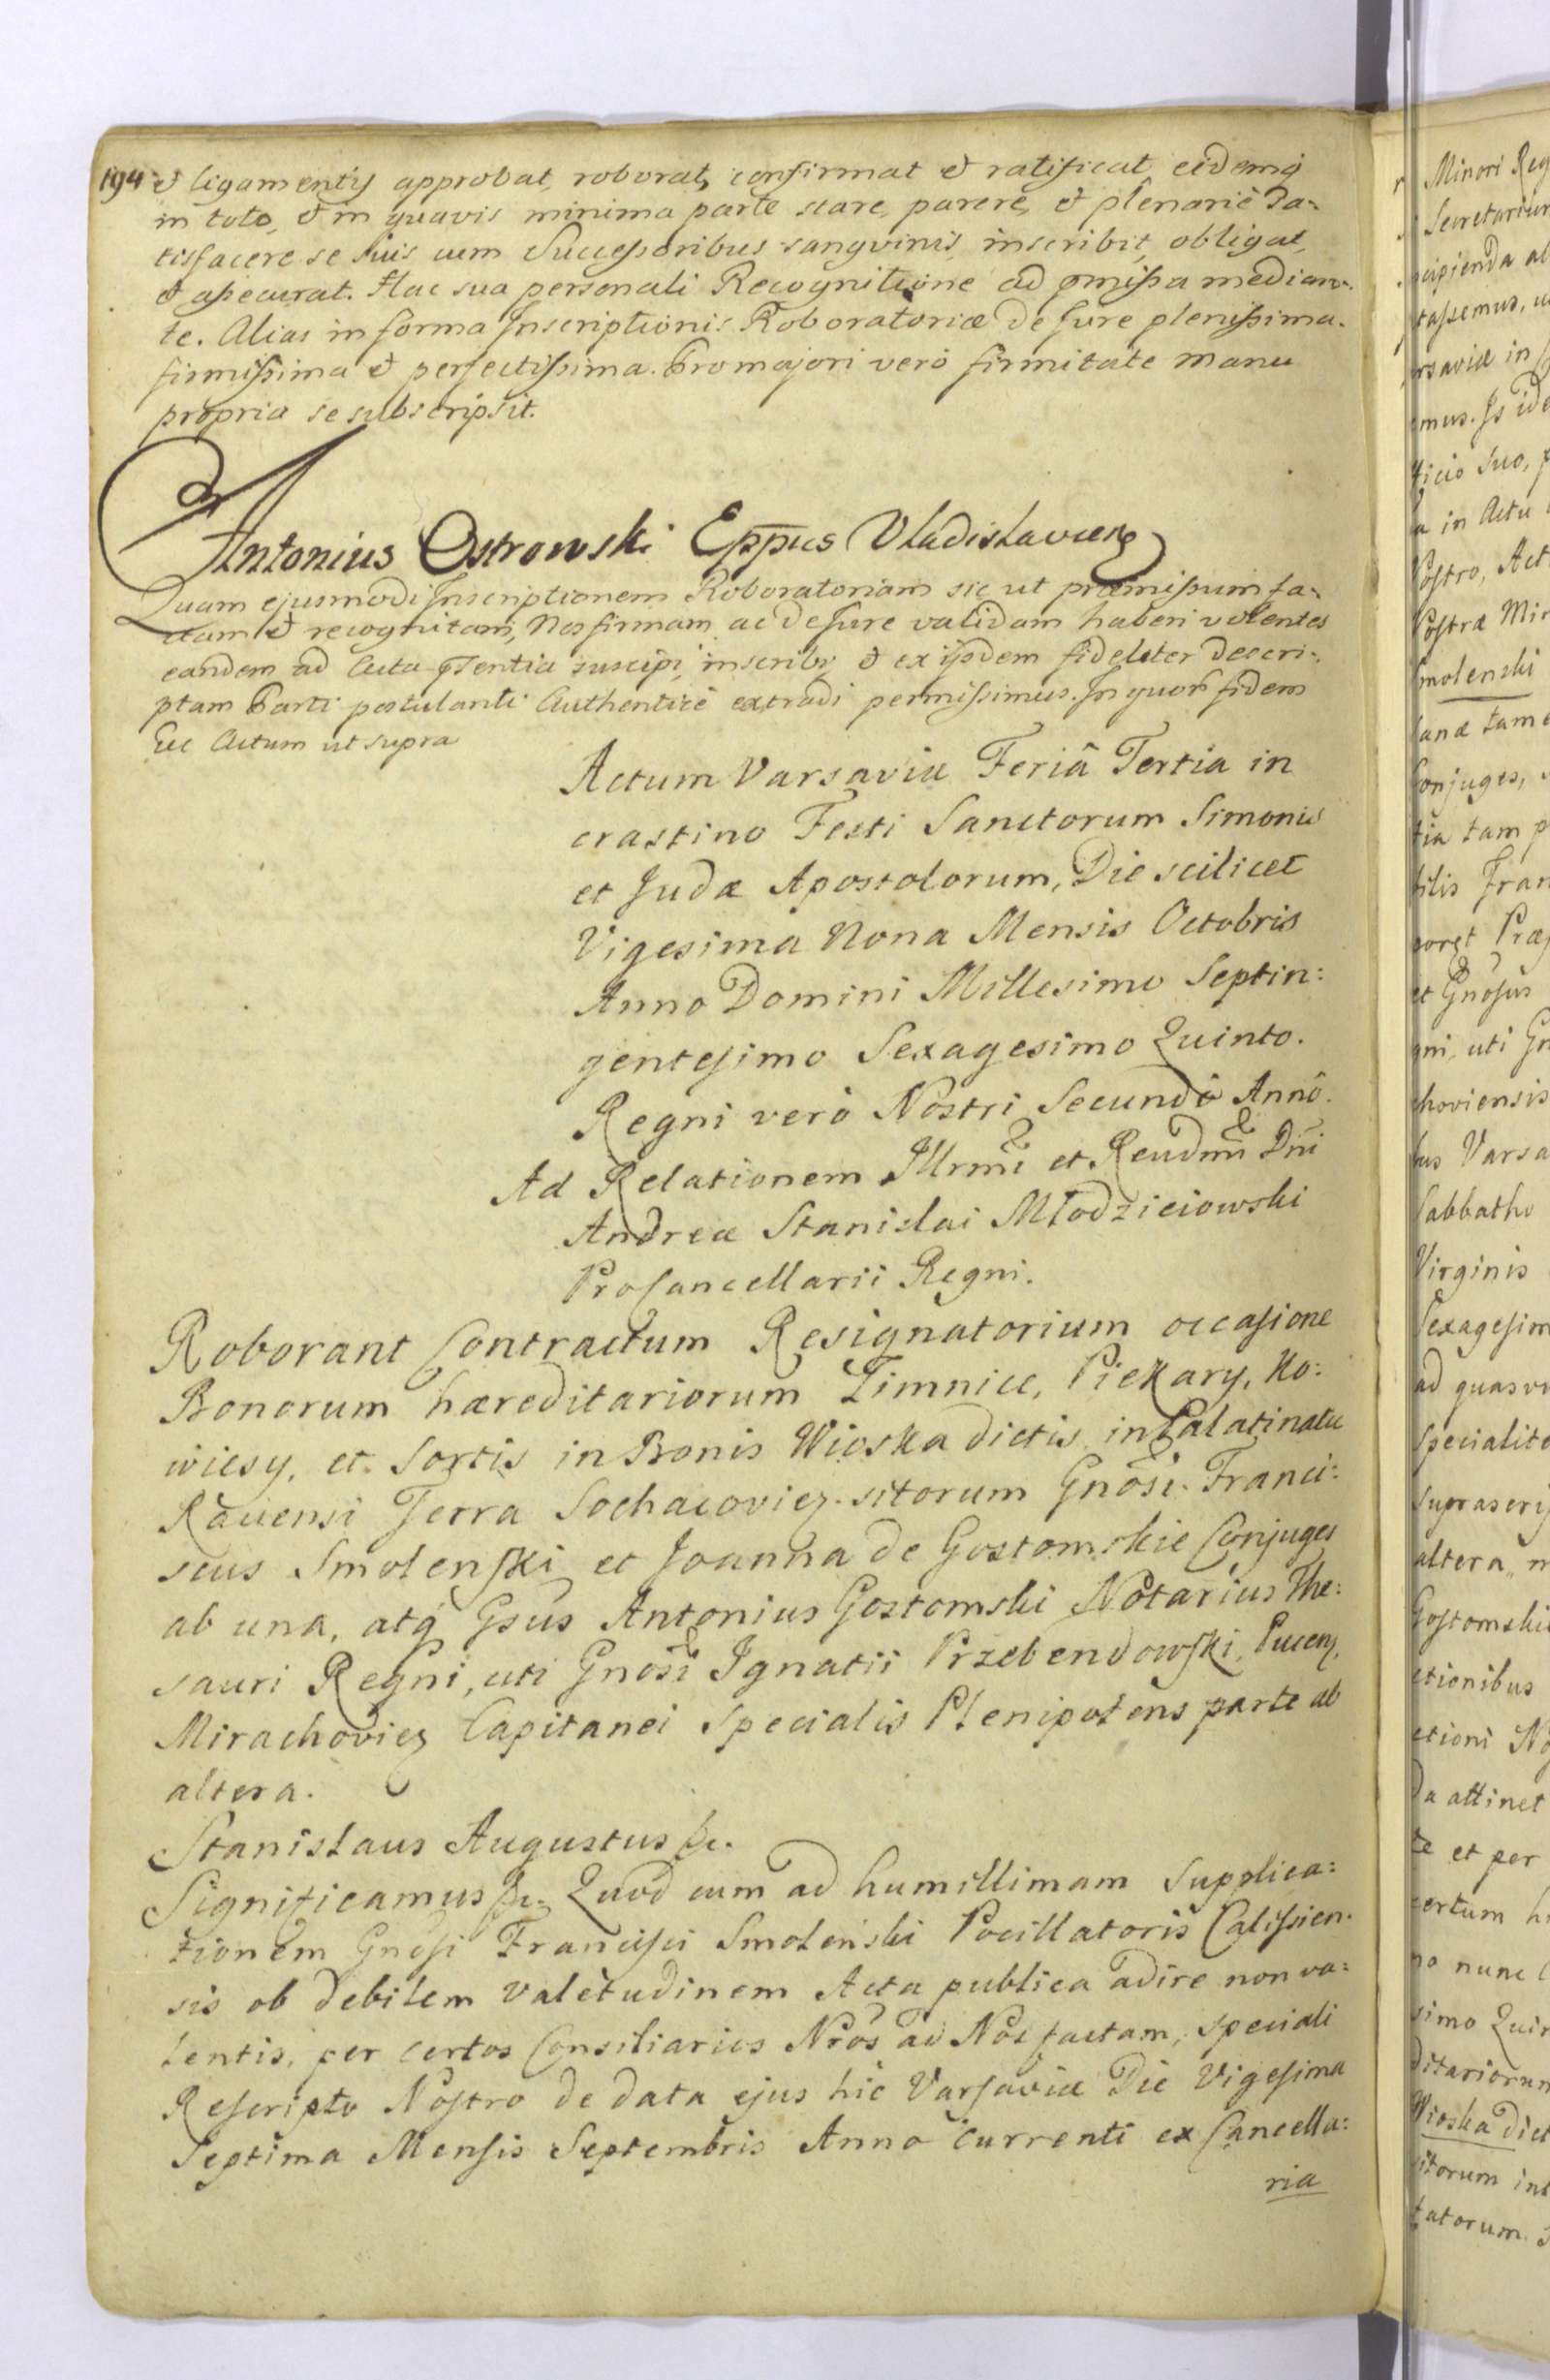 194 et ligamentis approbat, roborat, confirmat et ratificat, eidemq
in toto, et in quavis minima parte stare, parere, et plenarie Sa=
tisfacere se suis cum Successoribus sangvinis, inscribit, obligat,
et assecurat. Hac sua personali Recognitione ad pmissa median=
te. Alias in forma Inscriptionis Roboratoriæ de Jure plenissima.
firmissima et perfectissima. Pro majori verò firmitate manu
propria se subscripsit.
Antonius Ostrowski Eppus Vladislavien
Quam ejusmodi Inscriptionem Roboratoriam sic ut præmissum fa=
ctam et recognitam, Nos firmam ac de Jure validam haberi volentes
eandem ad Acta psentia suscipi, inscribi, et ex ijsdem fideliter descri=
ptam Parti postulanti Authenticè extradi permissimus. In quor fidem
Etc Actum ut supra
Actum Varsaviæ Feriâ Tertia in
crastino Festi Sanctorum Simonis
et Judæ Apostolorum, Die scilicet
Vigesima Nona Mensis Octobris
Anno Domini Millesimo Septin:
gentesimo Sexagesimo Quinto.
Regni verò Nostri Secundô Annô.
Ad Relationem Illrmi et Reudmi Dni
Andreæ Stanislai Młodzieiowski
ProCancellarii Regni.
Roborant Contractum Resignatorium occasione
Bonorum hæreditariorum Zimnice, Piekary, No:
wiesy, et Sortis in Bonis Wioska dictis in Palatinatu
Ravensi Terra Sochacovien. sitorum Gnosi. Franci:
scus Smolenski et Joanna de Gostomskie Conjuges
ab una, atq Gsus Antonius Gostomski Notarius The:
sauri Regni, uti Gnosi Ignatii Przebendowski, Pucen,
Mirachovien Capitanei Specialis Plenipotens parte ab
altera.
Stanislaus Augustus &c.
Significamus &c. Quod cum ad humillimam Supplica:
tionem Gnosi Francisci Smolenski Pocillatoris Calissien:
sis ob debilem valetudinem Acta publica adire non va:
lentis, per certos Consiliarios Nros ad Nos factam, speciali
Rescripto Nostro de data ejus hic Varsaviæ Die Vigesima
Septima Mensis Septembris Anno Currenti ex Cancella:
ria
Minori Reg
Secretarium
cipienda
tassemus,
rsaviæ in
mus. Is
ficio Suo,
a in Actu
Nostro, Act
Nostræ
Smolenski
Conjuges,
tia tam
bilis Fran
et Gnosus
gni, uti Gn
hoviensis
bus Varsa
Sabbatho
Virginis
Sexagesim
ad quasvi
Specialite
Suprascri
altera
Gostomski
ctionibus
ctioni
Da attinet
te et per
certum
no nunc
simo Quin
ditariorum
Wioska dict
sitorum
tatorum.